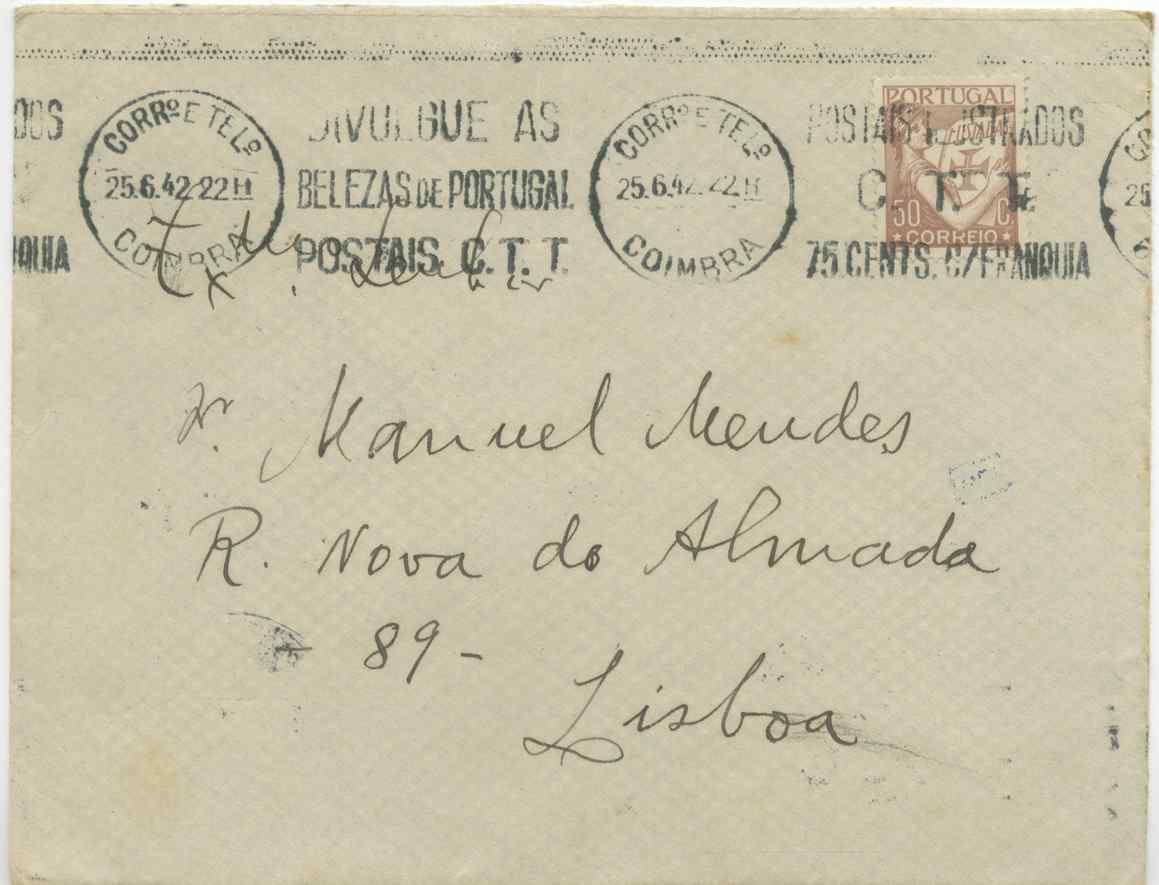 PORTUGAL
LUSIADAS
50 C.
CORREIO
DOS
QUIA
CORRº E TELº
25.6.42.22H
COIMBRA
DIVULGUE AS
BELEZAS DE PORTUGAL
POSTAIS C.T.T.
CORRº E TELº
25.6.42.22H
COIMBRA
POSTAIS ILUSTRADOS
C. T. T.
75 CENTS. C/FRANQUIA
CO
25
Ex.mo Senhor
Dr. Manuel Mendes
R. Nova do Almada
- 89 -
Lisboa